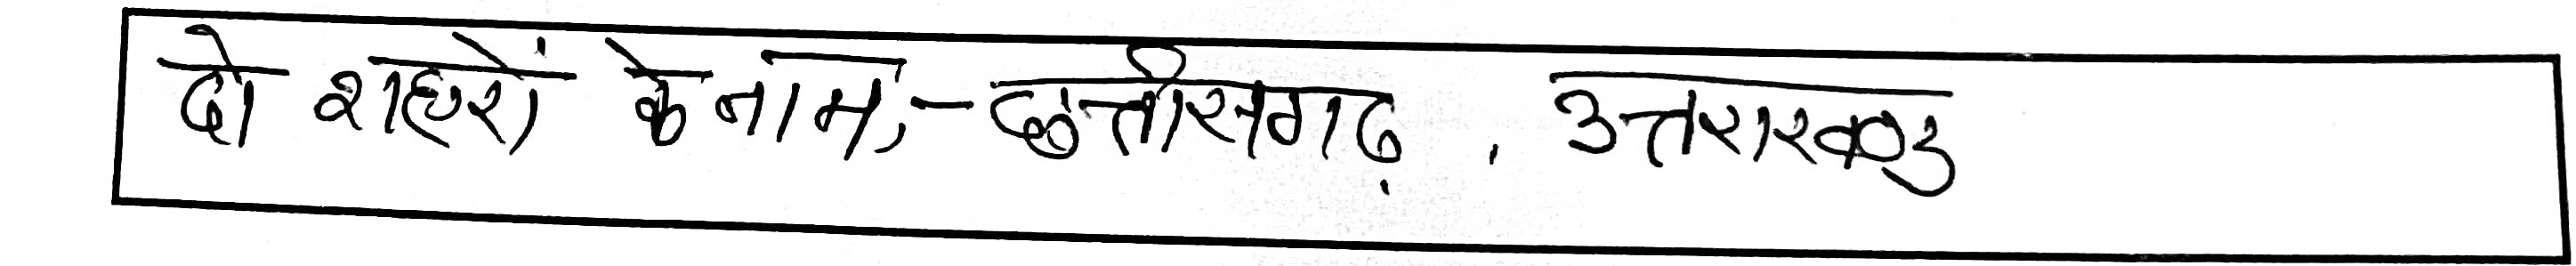 दो शहरों के नाम,- छत्तीसगढ़ , उत्तराखण्ड